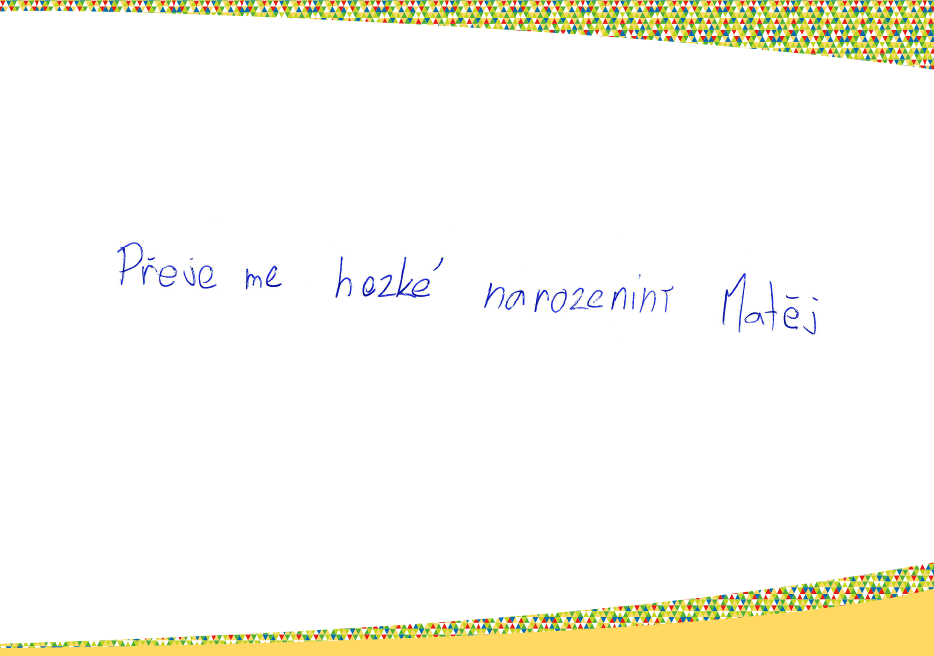 Přeje me hezké narozeniny Matěj